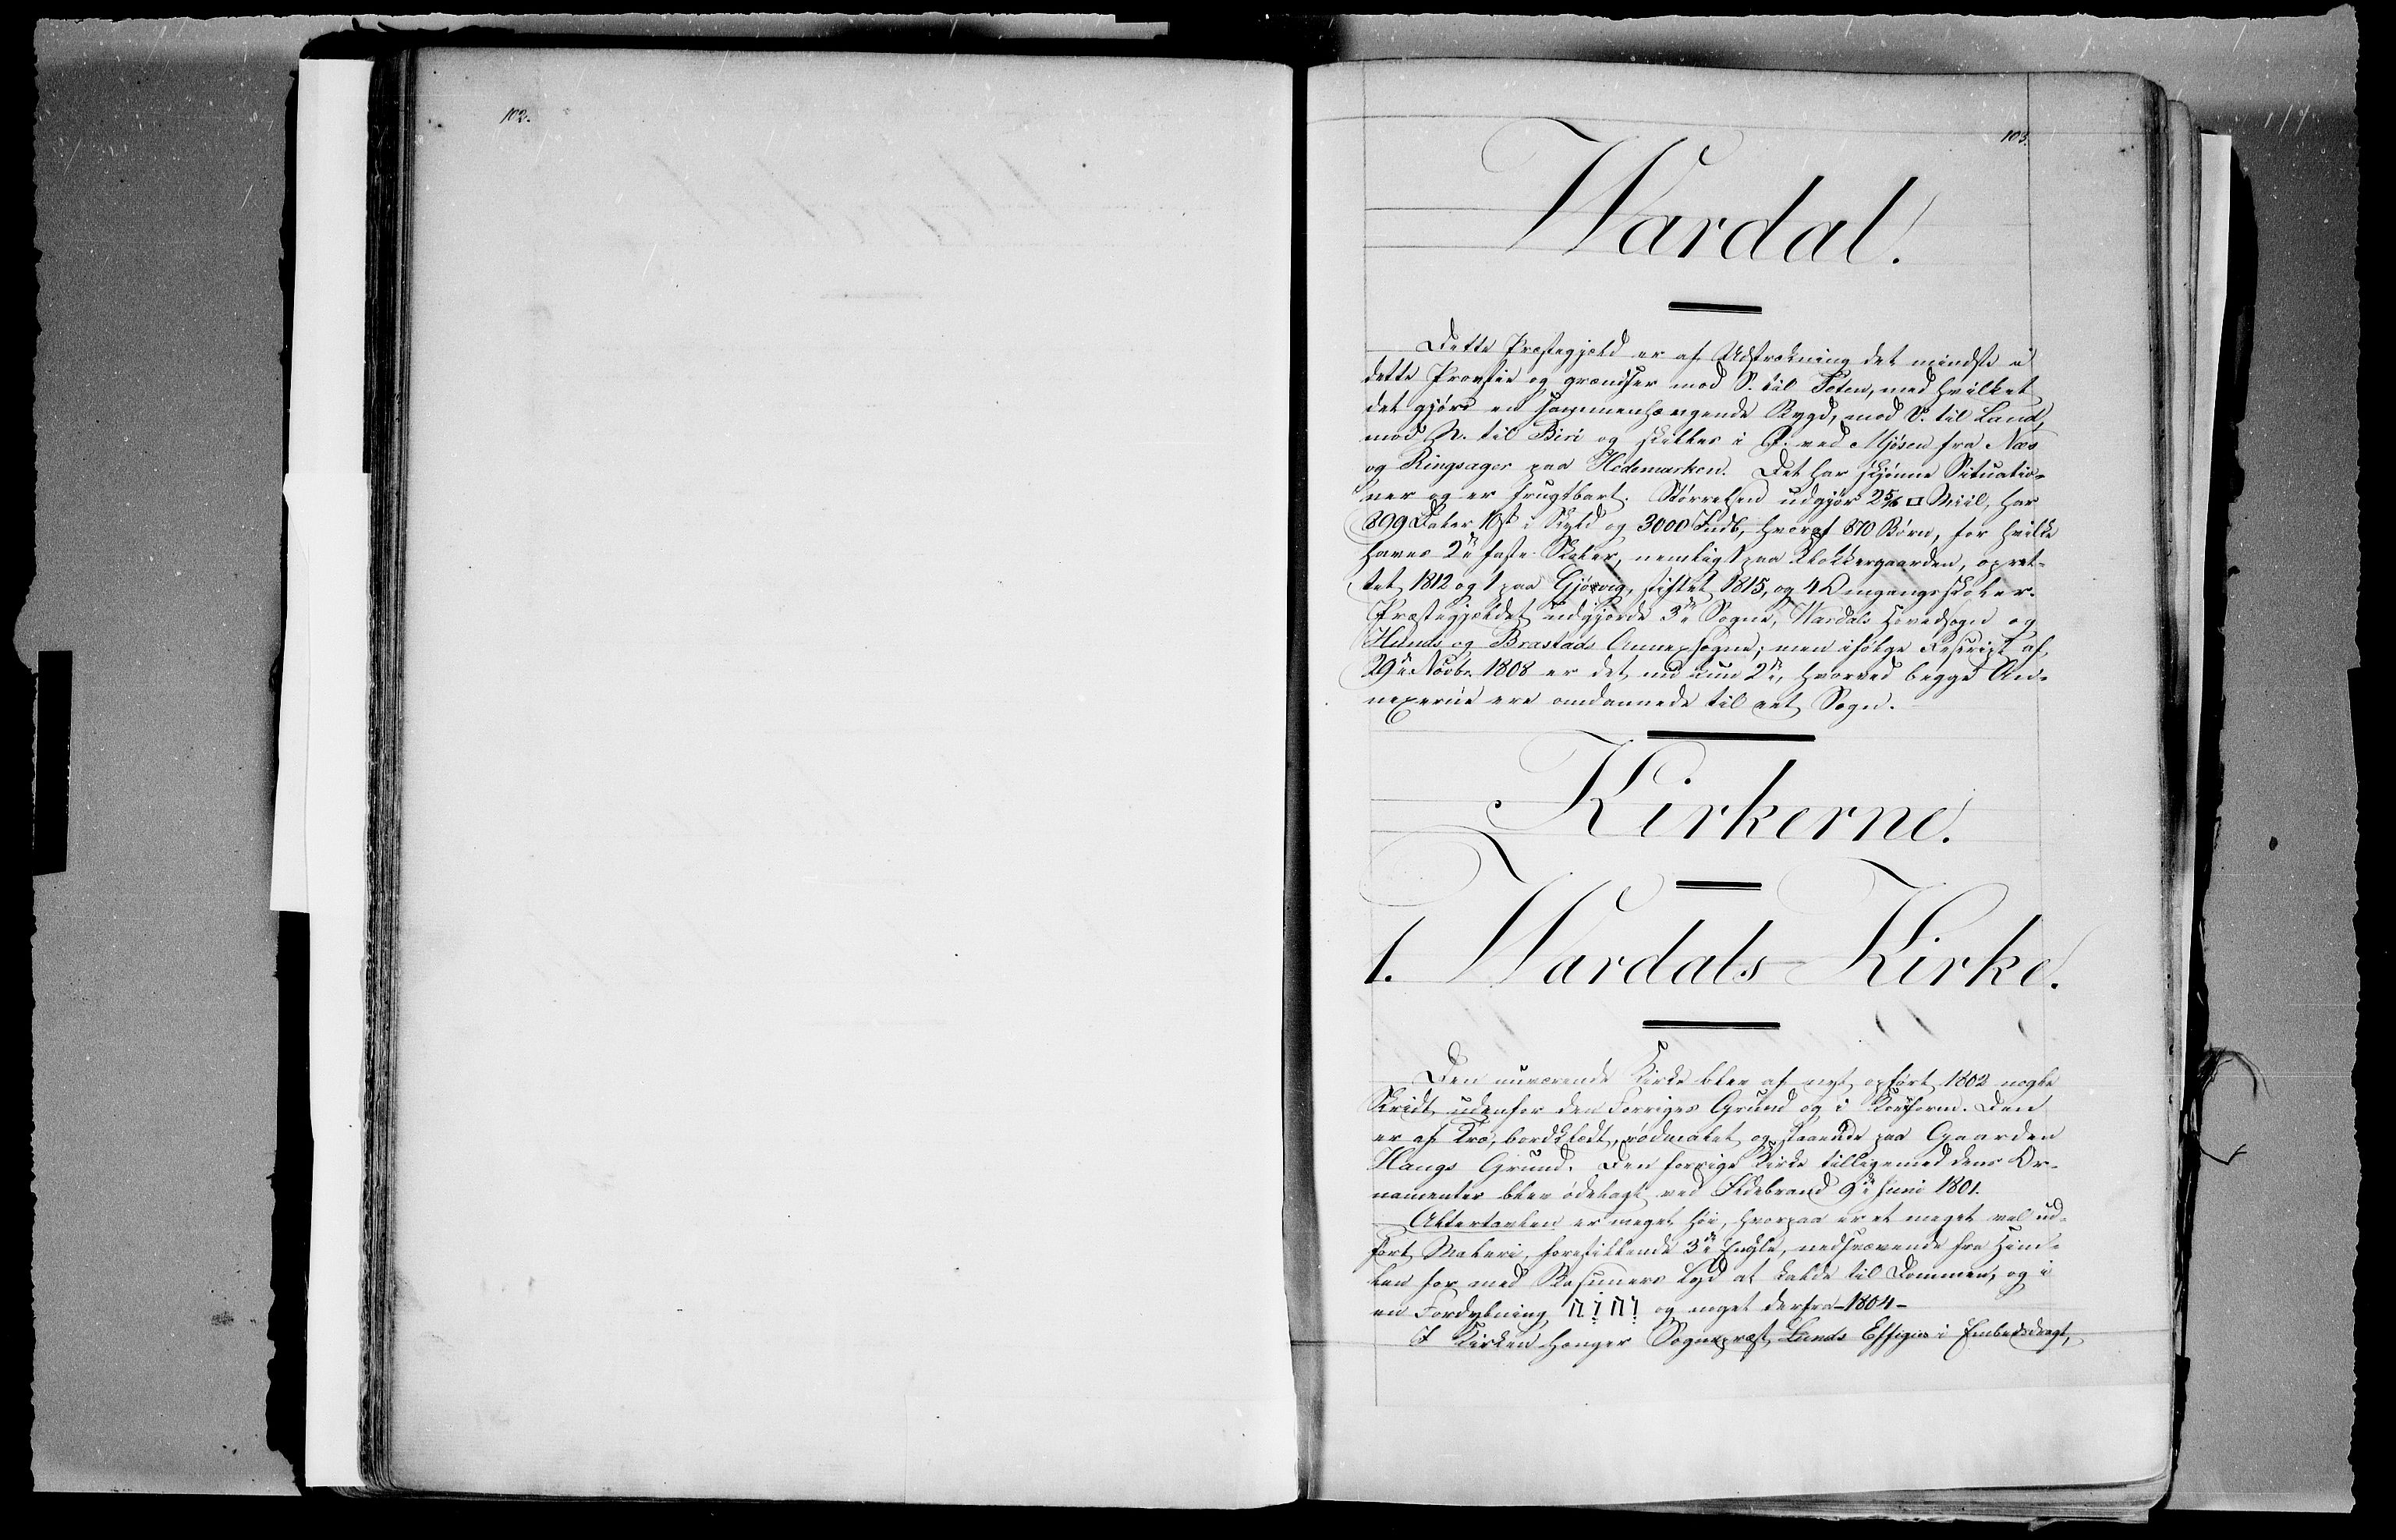 102.
103.
Wardal.
Dette Præstegjeld er af Udstrækning det mindste i
dette Provstie og grændser mod S. til Toten, med hvilket
det gjør en sammenhængende Bygd, mod V. til Land,
mod N. til Biri og skilles i Ø. ved Mjösen fra Næs
og Ringsager paa Hedemarken. Det har skjønne Situatio-
ner og er frugtbart. Størrelsen udgjør 2 5/6 □ Miil, har
899 Daler 10 i Skyld og 3000 Indb, hvoraf 870 Børn, for hvilke
haves 2de faste Skoler, nemlig 1 paa Klokkergaarden, opret-
tet 1812 og 1 paa Gjøvig, stiftet 1815, og 4 Omgangsskoler.
Præstegjeldet udgjorde 3de Sogne, Wardals Hovedsogn og
Hunds og Brastads Annexsogne; men ifølge Rescript af
29de Novbr. 1808 er det nu kun 2de, hvorved begge An-
nexerne ere omdannede til eet Sogn.
Kirkerne.
1. Wardals Kirke.
Den nuværende Kirke blev af nyt opført 1802 nogle
Skridt udenfor den Forriges Grund og i Korsform. Den
er af Træ, bordklædt, rødmalet og staaende paa Gaarden
Haugs Grund. Den forrige Kirke tilligemed dens Or-
namenter blev ødelagt ved Ildebrand 9de Juni 1801.
Altertavlen er meget høi, hvorpaa er et meget vel ud-
ført Maleri, forestillende 3de Engle, nedsvævende fra Him-
len for med Basuners Lyd at kalde til Dommen, og i
en Fordybning יהוה og neget derfra - 1804 -
I Kirken hænger Sognepræst Lunds Effigies i Embedsdragt,